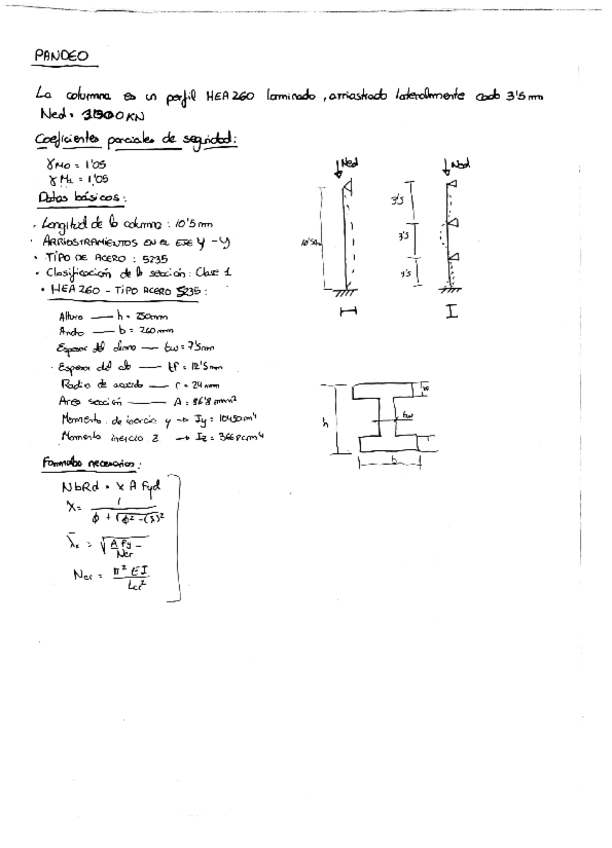 PANDEO
La columna es un perfil HEA 260 laminado, arriostrado lateralmente cada 3'5 m
Ned = KN
Coeficientes parciales de seguridad:
γM0 = 1'05
γM1 = 1'05
Datos básicos:
· Longitud de la columna : 10'5 m
· ARRIOSTRAMIENTOS EN EL EJE Y - Y
· TIPO DE ACERO : S235
· Clasificación de la sección : Clase 1
· HEA 260 - TIPO ACERO S235 :
Altura — h = 250mm
Ancho — b = 260mm
Espesor del alma — tw = 7'5mm
Espesor del ala — tf = 12'5mm
Radio de acuerdo — r = 24mm
Area sección — A = 86'8 mm²
Momento de inercia y → Iy = 10450 m⁴
Momento inercia z → Iz = 3668 cm⁴
Formulas necesarias :
NbRd = χ A Fyd
χ = 1 / ϕ + √ϕ² - (λ̄)²
λ̄ = √A Fy / Ncr
Ncr = π² EI / Lcr²
Ned
10'5m
Ned
3'5
3'5
3'5
h
tw
b